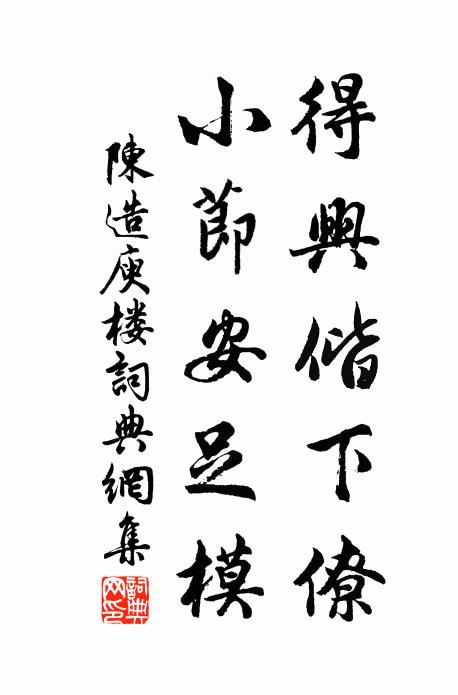 得興偕下僚
小節安足模
陳造庾楼詞典網集
詞典网印